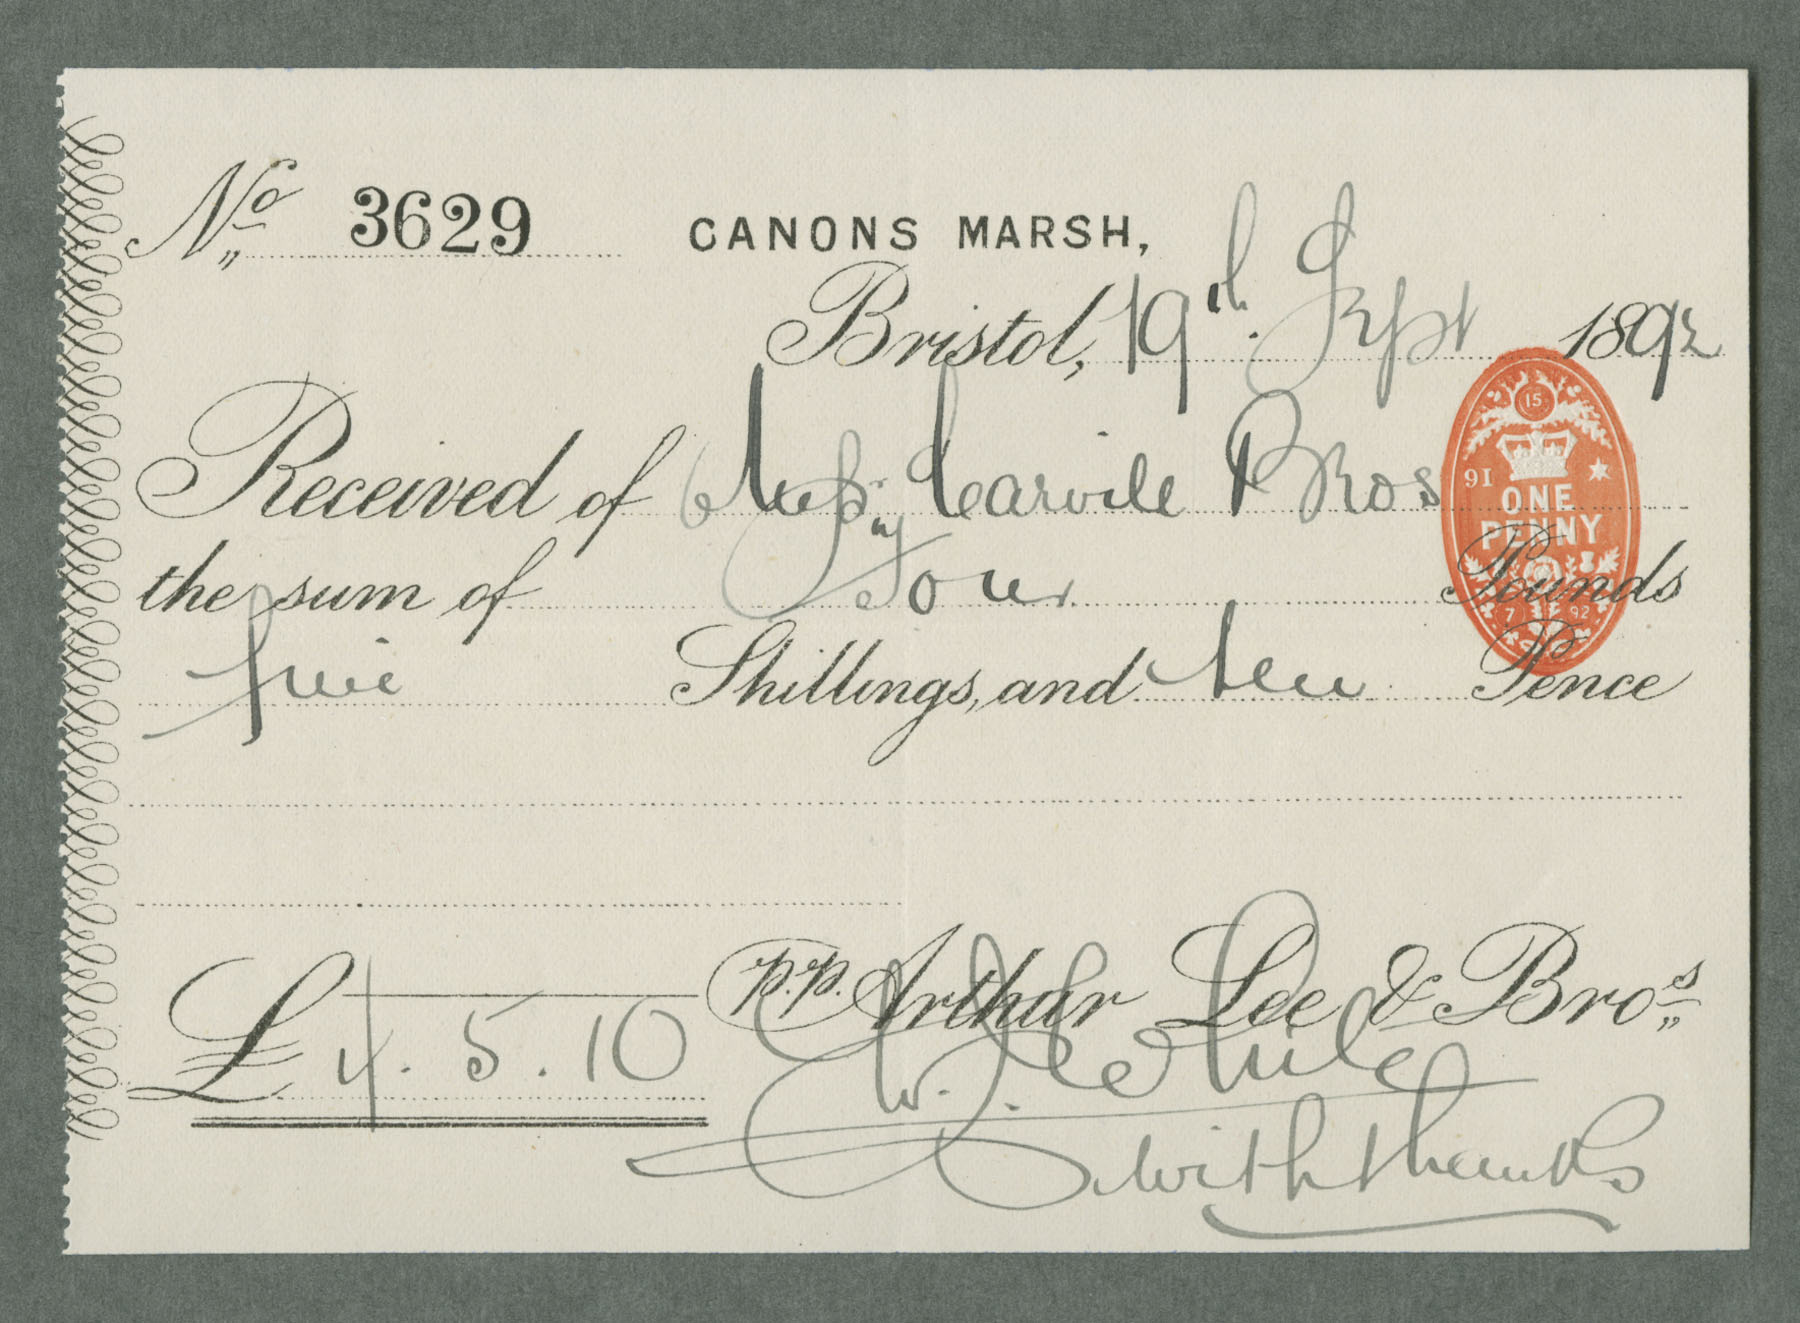 No 3629
CANONS MARSH,
Bristol, 19th Sept 1892
Received of Messrs Carvile Bros
the sum of Four Pounds
five Shillings, and ten Pence
15
91
ONE
PENNY
7 92
£ 4.5.10
p.p. Arthur Lee & Bros
with thanks